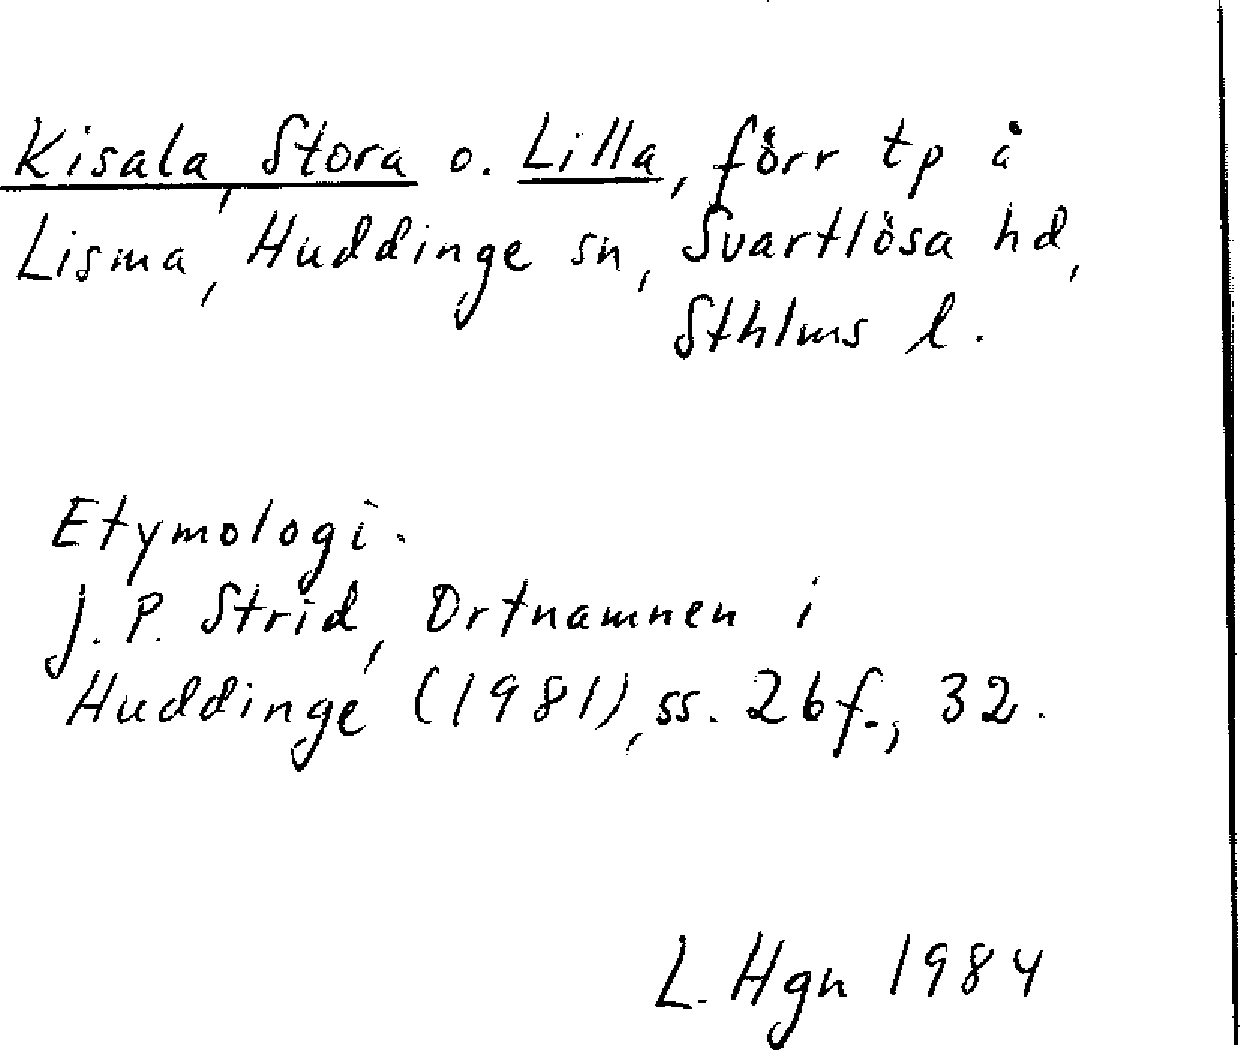 Kisala, Stora o. Lilla, förr tp å
Lisma, Huddinge sn, Svartlösa hd,
Sthlms l.
Etymologi.
J. P. Strid, Ortnamnen i
Huddinge (1981), ss. 26f., 32.
L. Hgn 1984